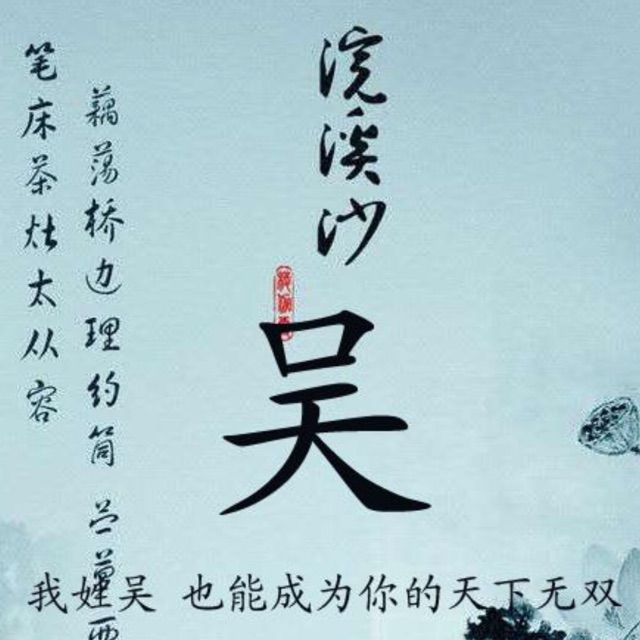 浣溪沙
吴
藕荡桥边理约筒 苎萝西
笔床茶灶太从容
我姓吴 也能成为你的天下无双